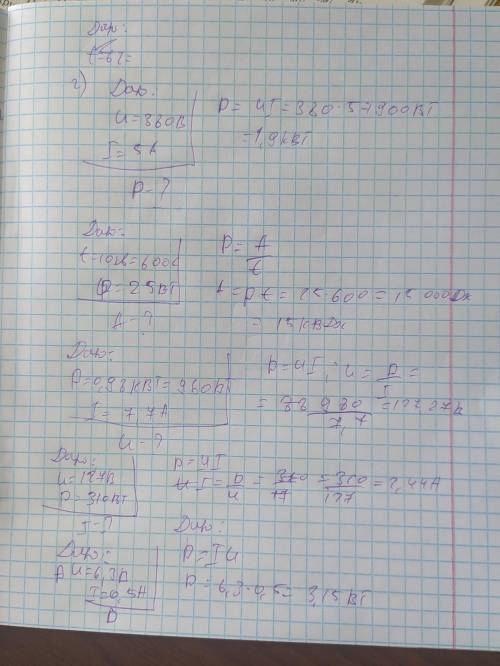 Дар:
t=62=
2) Дар:
U=380В
I=5А
P-?
P= UI=380·5=1900Вт
=1,9кВт
Дар:
t=10м=600с
P=25Вт
A-?
P=A/t
A=pt=25·600=15000Дж
=15кДж
Дар:
P=0,98кВт=980Вт
I=7,7А
U-?
P=UI; U=P/I=
=980/7,7=127,27В
Дар:
U=127В
P=310Вт
I-?
p=UI
I=P/U=310=310/127=2,44А
Дар:
U=6,3В
I=0,5А
P
Дар:
P=IU
P=6,3·0,5=3,15Вт